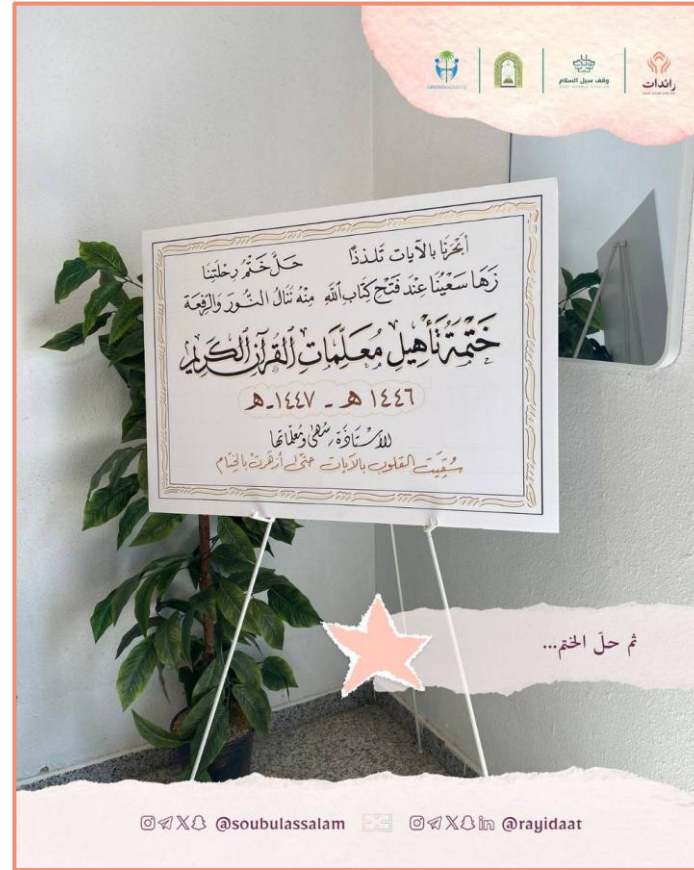 رائدات
وقف سبل السلام
أَبْحَرَنَا بالآيات تَلذذًا حَلَّ خَتْمُ رِحْلَتِنَا
زَهَا سَعْيُنَا عِنْدَ فَتْحِ كِتَابِ اللَّهِ مِنْهُ نَنَالُ النُّورَ وَالرِّفْعَة
خَتْمَةُ تَأْهِيلِ مُعَلِّمَاتِ القُرْآنِ الكَرِيمِ
١٤٤٦ هـ - ١٤٤٧ هـ
للأسْتَاذَة سُهى وَمُعلِّماتها
سُقِيَت القلوب بالآيات حتى أزهَرت بالخِتام
ثم حلّ الختم...
@soubulassalam @rayidaat